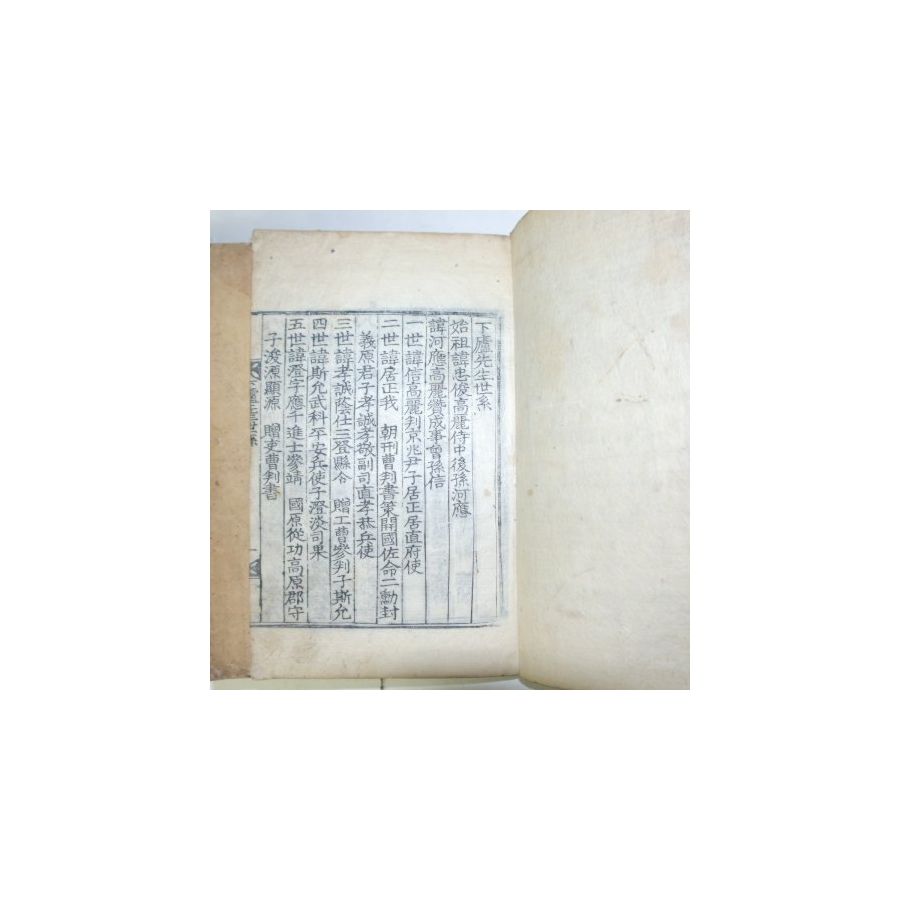 下廬先生世系
始祖諱忠俊高麗侍中後孫河應
諱河應高麗贊成事曾孫信
一世諱信高麗判京兆尹子居正居直府使
二世諱居正我 朝刑曹判書策開國佐命二勳封
義原君子孝誠孝敬副司直孝恭兵使
三世諱孝誠蔭仕三登縣令 贈工曹參判子斯允
四世諱斯允武科平安兵使子澄淡司果
五世諱澄字應千進士參靖 國原從功高原郡守
子浚源顯源 贈吏曹判書